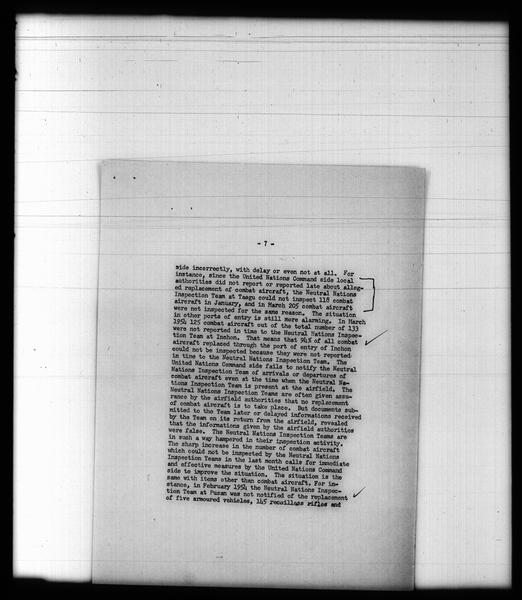 - 7 -
side incorrectly, with delay or even not at all. For
instance, since the United Nations Command side local
authorities did not report or reported late about alleg-
ed replacement of combat aircraft, the Neutral Nations
Inspection Team at Taegu could not inspect 118 combat
aircraft in January, and in March 205 combat aircraft
were not inspected for the same reason. The situation
in other ports of entry is still more alarming. In March
1954 125 combat aircraft out of the total number of 133
were not reported in time to the Neutral Nations Inspec-
tion Team at Inchon. That means that 94% of all combat
aircraft replaced through the port of entry of Inchon
could not be inspected because they were not reported
in time to the Neutral Nations Inspection Team. The
United Nations Command side fails to notify the Neutral
Nations Inspection Team of arrivals or departures of
combat aircraft even at the time when the Neutral Na-
tions Inspection Team is present at the airfield. The
Neutral Nations Inspection Teams are often given assu-
rance by the airfield authorities that no replacement
of combat aircraft is to take place. But documents sub-
mitted to the Team later or delayed informations received
by the Team on its return from the airfield, revealed
that the informations given by the airfield authorities
were false. The Neutral Nations Inspection Teams are
in such a way hampered in their inspection activity.
The sharp increase in the number of combat aircraft
which could not be inspected by the Neutral Nations
Inspection Teams in the last month calls for immediate
and effective measures by the United Nations Command
side to improve the situation. The situation is the
same with items other than combat aircraft. For in-
stance, in February 1954 the Neutral Nations Inspec-
tion Team at Pusan was not notified of the replacement
of five armoured vehicles, 145 recoilless rifles and